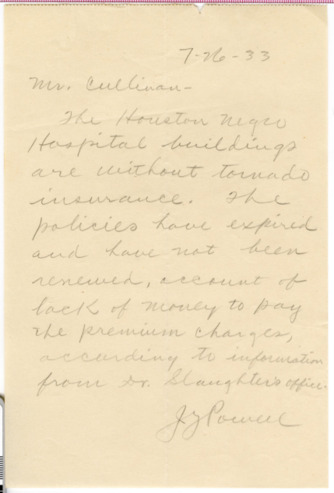 7-26-33
Mr. Cullinan-
The Houston Negro
Hospital buildings
are without tornado
insurance. The
policies have expired
and have not been
renewed, account of
lack of money to pay
the premium charges,
according to information
from Dr. Slaughter's office.
Powell